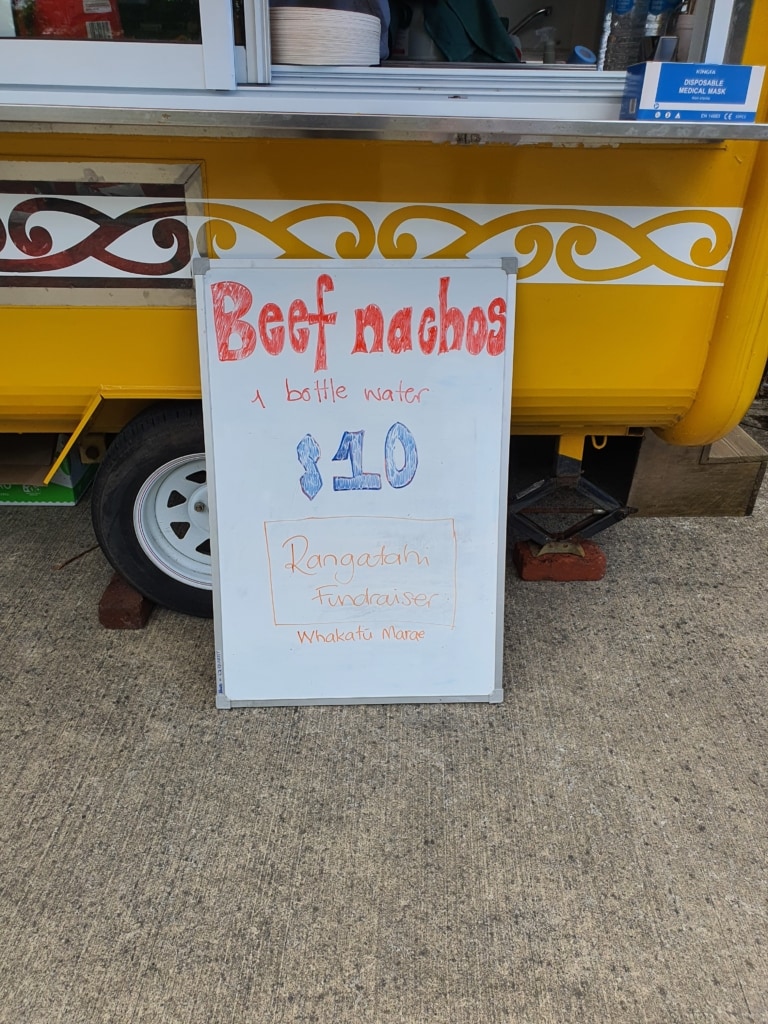 KINGFA
DISPOSABLE
MEDICAL MASK
Beef nachos
1 bottle water
$10
Rangatahi
Fundraiser
Whakatū Marae